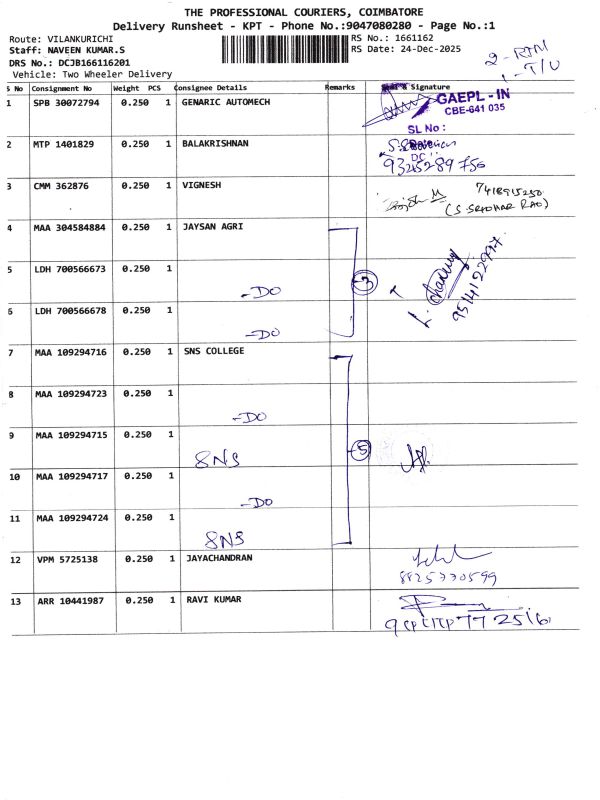 THE PROFESSIONAL COURIERS, COIMBATORE
Delivery Runsheet - KPT - Phone No.:9047080280 - Page No.:1
Route: VILANKURICHI
RS No.: 1661162
Staff: NAVEEN KUMAR.S
RS Date: 24-Dec-2025
DRS No.: DCJB166116201
Vehicle: Two Wheeler Delivery
2 - RTN
1 - T/U
S No Consignment No Weight PCS Consignee Details Remarks Seal & Signature
1 SPB 30072794 0.250 1 GENARIC AUTOMECH
GAEPL - IN
CBE-641 035
SL No :
2 MTP 1401829 0.250 1 BALAKRISHNAN
DC
9345289756
3 CMM 362876 0.250 1 VIGNESH
7418915250
(S SRIDHAR RAO)
4 MAA 304584884 0.250 1 JAYSAN AGRI
5 LDH 700566673 0.250 1
-DO
3
9514122997
6 LDH 700566678 0.250 1
-DO
7 MAA 109294716 0.250 1 SNS COLLEGE
8 MAA 109294723 0.250 1
-DO
9 MAA 109294715 0.250 1
SNS
5
10 MAA 109294717 0.250 1
-DO
11 MAA 109294724 0.250 1
SNS
12 VPM 5725138 0.250 1 JAYACHANDRAN
8825770599
13 ARR 10441987 0.250 1 RAVI KUMAR